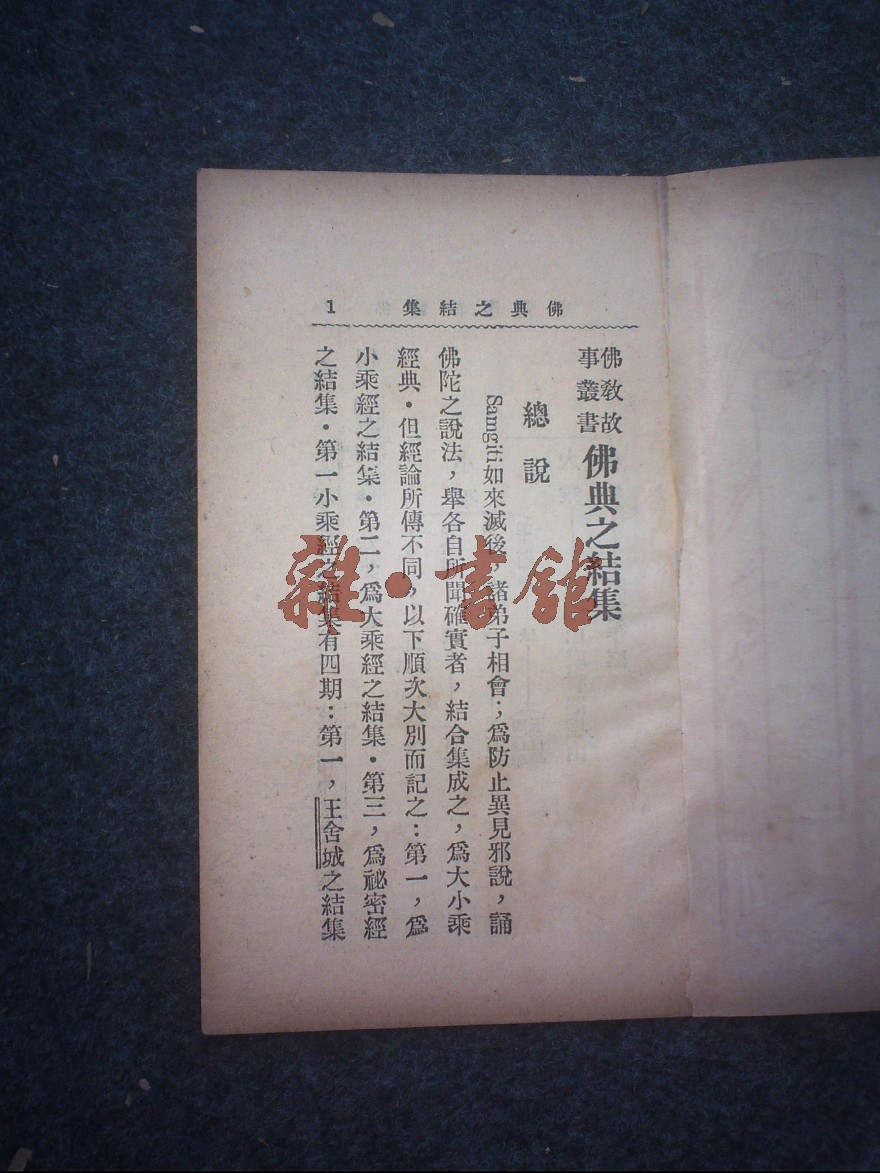 佛典之結集 1
佛敎故事叢書 佛典之結集
總說
Samgiti如來滅後，諸弟子相會；爲防止異見邪說，誦
佛陀之說法，舉各自所聞確實者，結合集成之，爲大小乘
經典．但經論所傳不同，以下順次大別而記之：第一，爲
小乘經之結集．第二，爲大乘經之結集．第三，爲祕密經
之結集．第一小乘經之結集有四期：第一，王舍城之結集
雜·書館